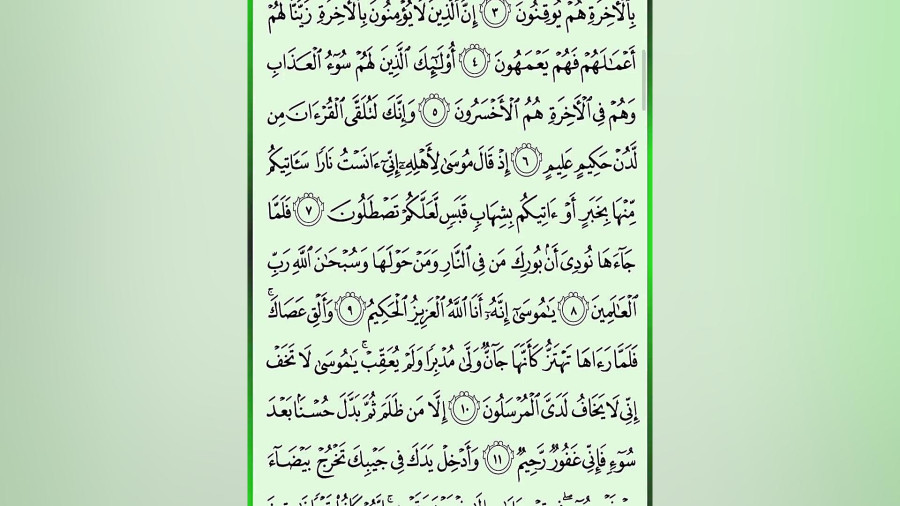 بِٱلْأَخِرَةِ هُمْ يُوقِنُونَ ٣ إِنَّ ٱلَّذِينَ لَا يُؤْمِنُونَ بِٱلْأَخِرَةِ زَيَّنَّا لَهُمْ
أَعْمَٰلَهُمْ فَهُمْ يَعْمَهُونَ ٤ أُوْلَٰٓئِكَ ٱلَّذِينَ لَهُمْ سُوٓءُ ٱلْعَذَابِ
وَهُمْ فِى ٱلْأَخِرَةِ هُمُ ٱلْأَخْسَرُونَ ٥ وَإِنَّكَ لَتُلَقَّى ٱلْقُرْءَانَ مِن
لَّدُنْ حَكِيمٍ عَلِيمٍ ٦ إِذْ قَالَ مُوسَىٰ لِأَهْلِهِۦٓ إِنِّىٓ ءَانَسْتُ نَارًا سَـَٔاتِيكُم
مِّنْهَا بِخَبَرٍ أَوْ ءَاتِيكُم بِشِهَابٍ قَبَسٍ لَّعَلَّكُمْ تَصْطَلُونَ ٧ فَلَمَّا
جَآءَهَا نُودِىَ أَنۢ بُورِكَ مَن فِى ٱلنَّارِ وَمَنْ حَوْلَهَا وَسُبْحَٰنَ ٱللَّهِ رَبِّ
ٱلْعَٰلَمِينَ ٨ يَٰمُوسَىٰٓ إِنَّهُۥٓ أَنَا ٱللَّهُ ٱلْعَزِيزُ ٱلْحَكِيمُ ٩ وَأَلْقِ عَصَاكَۚ
فَلَمَّا رَءَاهَا تَهْتَزُّ كَأَنَّهَا جَآنٌّ وَلَّىٰ مُدْبِرًا وَلَمْ يُعَقِّبْۚ يَٰمُوسَىٰ لَا تَخَفْ
إِنِّى لَا يَخَافُ لَدَىَّ ٱلْمُرْسَلُونَ ١٠ إِلَّا مَن ظَلَمَ ثُمَّ بَدَّلَ حُسْنًۢا بَعْدَ
سُوٓءٍ فَإِنِّى غَفُورٌ رَّحِيمٌ ١١ وَأَدْخِلْ يَدَكَ فِى جَيْبِكَ تَخْرُجْ بَيْضَآءَ